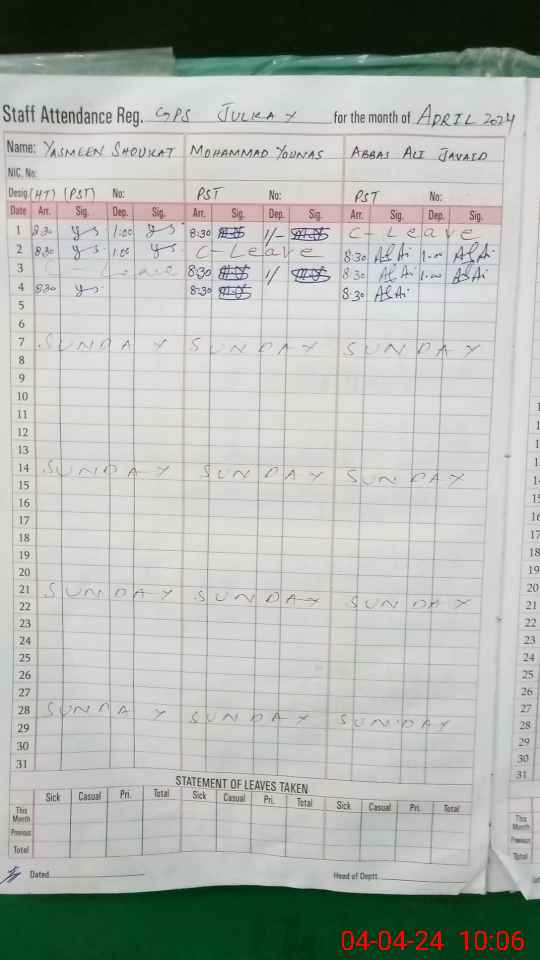 Staff Attendance Reg. GPS JULKAY for the month of APRIL 2024
Name: YASMEEN SHOUKAT MOHAMMAD YOUNAS ABBAS ALI JAVAID
NIC. No:
Desig. (HT) (PST) No: PST No: PST No:
Date Arr. Sig. Dep. Sig. Arr. Sig. Dep. Sig. Arr. Sig. Dep. Sig.
1 8:30 ys 1:00 ys 8:30 1/- C-Leave
2 8:30 ys 1:00 ys C-Leave 8:30 1-00
3 C-Leave 8:30 1/ 8:30 1-00
4 8:30 ys 8-30 8-30
5
6
7 SUNDAY SUNDAY SUNDAY
8
9
10
11
12
13
14 SUNDAY SUNDAY SUNDAY
15
16
17
18
19
20
21 SUNDAY SUNDAY SUNDAY
22
23
24
25
26
27
28 SUNDAY SUNDAY SUNDAY
29
30
31
STATEMENT OF LEAVES TAKEN
Sick Casual Pri. Total Sick Casual Pri. Total Sick Casual Pri. Total
This Month
Previous
Total
Dated Head of Deptt.
04-04-24 10:06